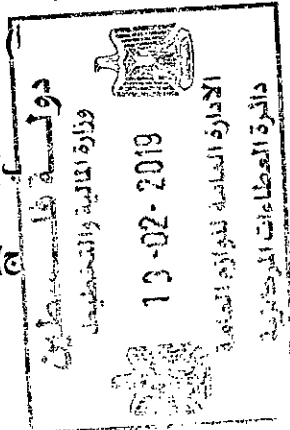 دولة فلسطين
وزارة المالية والتخطيط
13-02-2019
الادارة العامة للوازم العامة
دائرة العطاءات المركزية